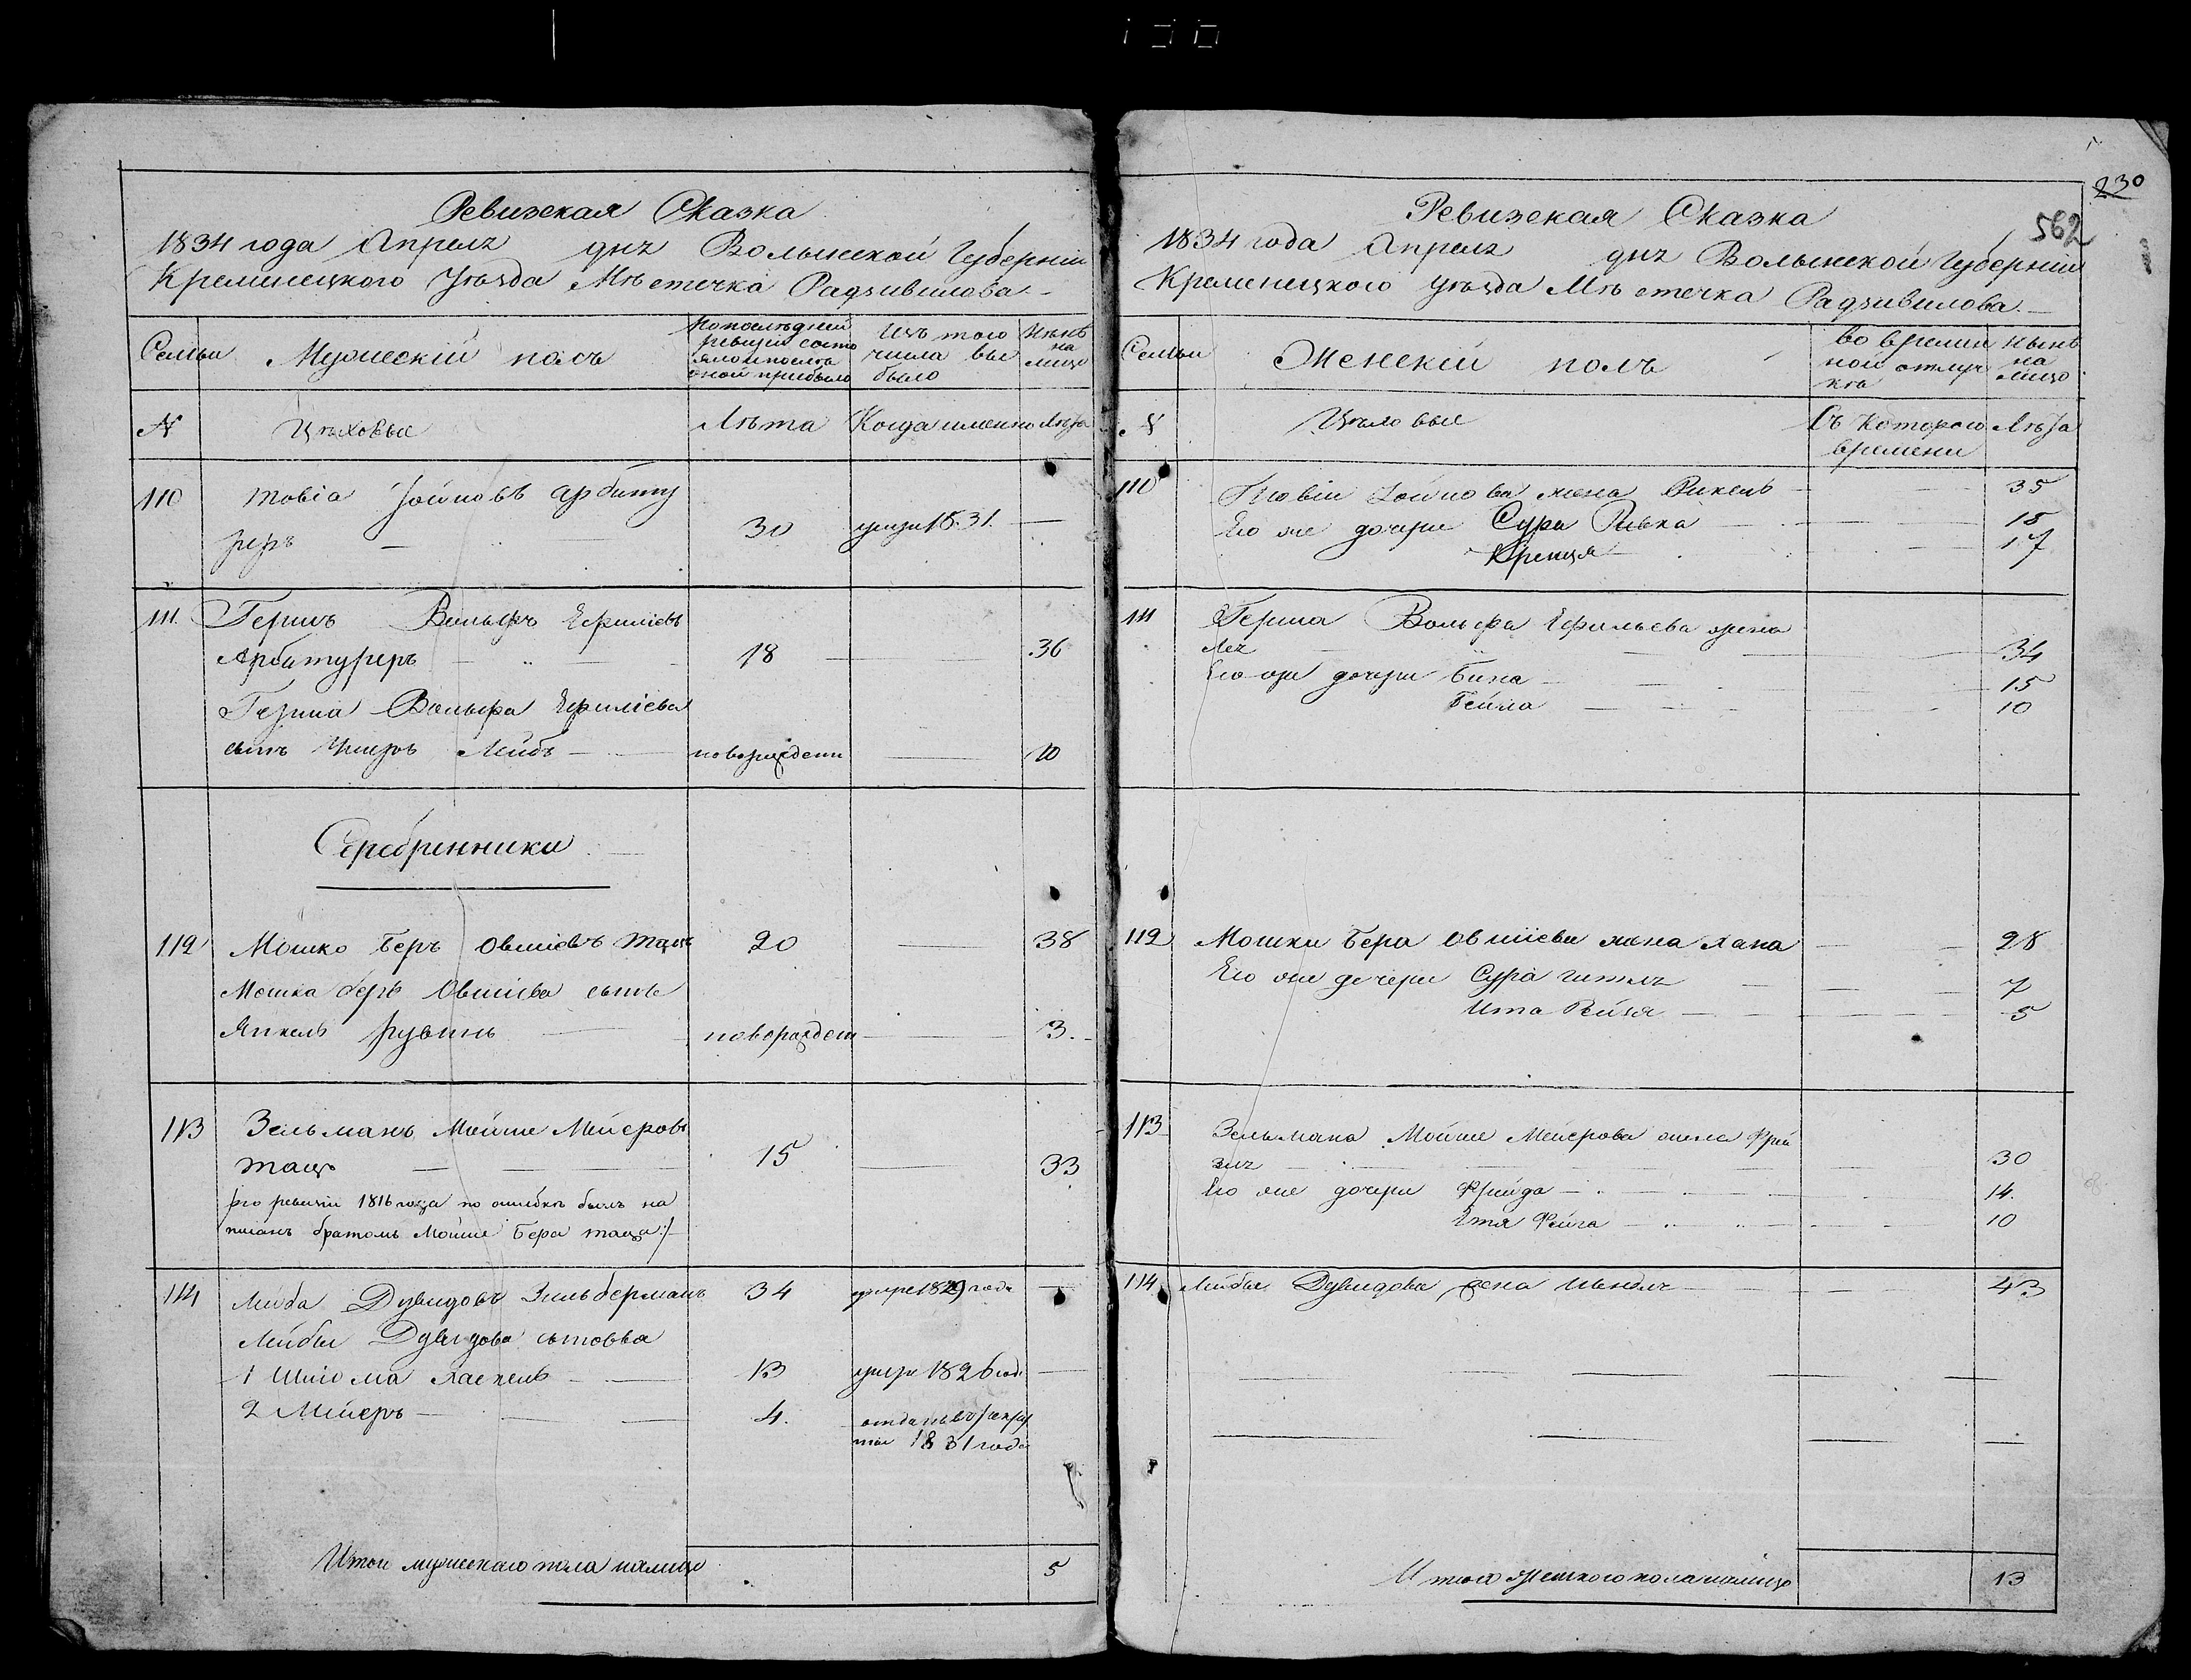 Ревизская Сказка
1834 года Апреля дня Волынской Губерніи
Кременецкого Уѣзда Мѣстечка Радзивилова
Семьи
Мужескій полъ
По послѣдней ревизіи состояло и послѣ оной прибыло
Изъ того числа выбыло
Нынѣ на лицо
№
Цѣховые
Лѣта
Когда именно
Лѣта
110 Товіа Іойновъ Арбиту
реръ 30 умре 1831
111. Гершъ Вольфъ Ефраіевъ
Арбитуреръ 18 36
Герша Вольфа Ефраіева
сынъ Лейбъ новорожден 10
Серебренники
112 Мошко Беръ Овшіевъ Тацъ 20 38
Мошка Беръ Овшіева сынъ
Янкель Рувинъ новорожден 3.
113 Зельманъ Мойше Меіеровъ
Тацъ 15 33
по ревизіи 1816 года по ошибкѣ былъ на
писанъ братомъ Мойше Бера Таца
114 Лейба Дувидовъ Зильберманъ 34 умре 1829 года
Лейбы Дувидова сыновья
1 Шліома Хаскель 13 умре 1826 года
2 Меіеръ 4. отданъ въ рекру
ты 1831 года
Итого мужескаго пола налицо 5
230
562
Ревизская Сказка
1834 года Апреля дня Волынской Губерніи
Кременецкого Уѣзда Мѣстечка Радзивилова
Семьи
Женскій полъ
Во временной отлучкѣ
Нынѣ на лицо
№
Цѣховые
Съ которого времени
Лѣта
110 Товіи Іойнова жена Рикель 35
Его же дочери Сура Ривка 18
Крейця 17
111 Герша Вольфа Ефраіева жена
Лея 34
Его же дочери Бина 15
Бейла 10
112 Мошки Бера Овшіева жена Хана 28
Его же дочери Сура Гитля 7
Ита Рейзя 5
113 Зельмана Мойше Меіерова жена Фрей
зя 30
Его же дочери Фрейда 14.
Етя Фейга 10
114 Лейбы Дувидова жена 43
Итого женского пола налицо 13